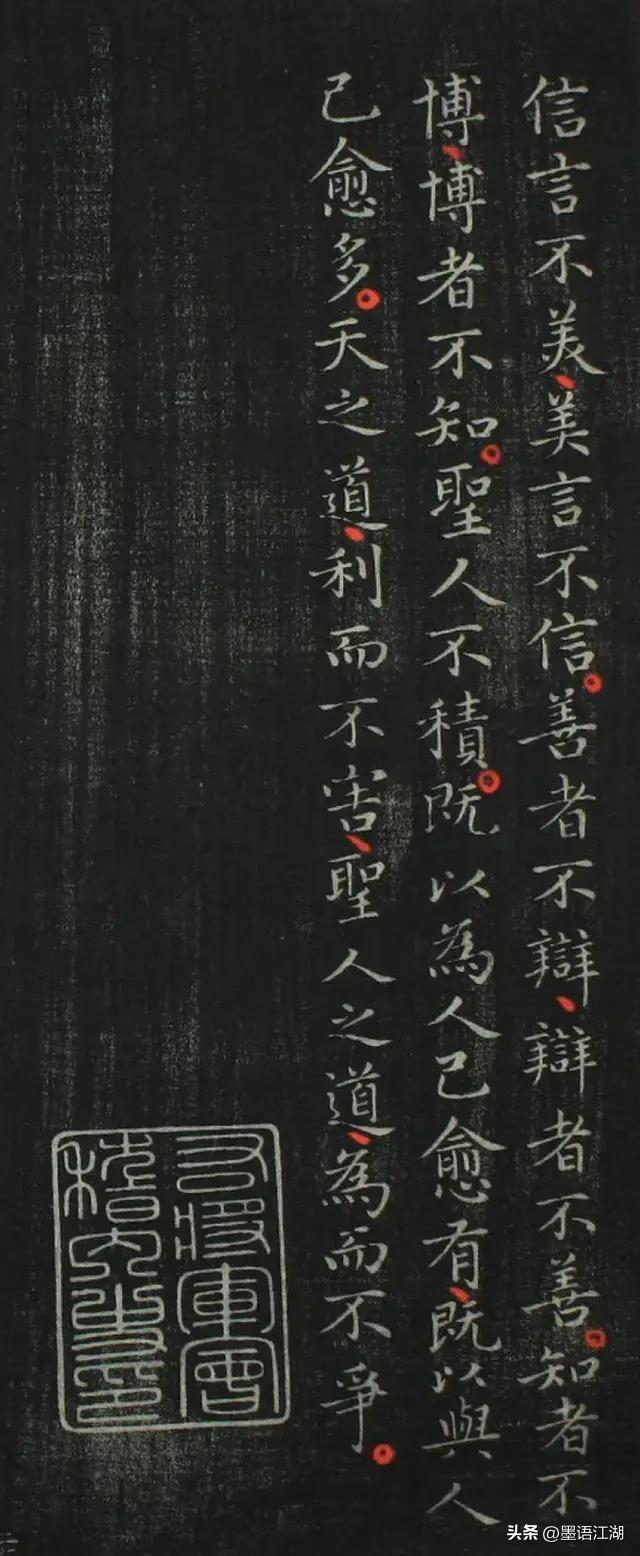 信言不美、美言不信。善者不辯、辯者不善。知者不
博、博者不知。聖人不積。既以為人己愈有、既以與人
己愈多。天之道、利而不害、聖人之道、為而不爭。
右將軍會
稽內史印
头条 @墨语江湖